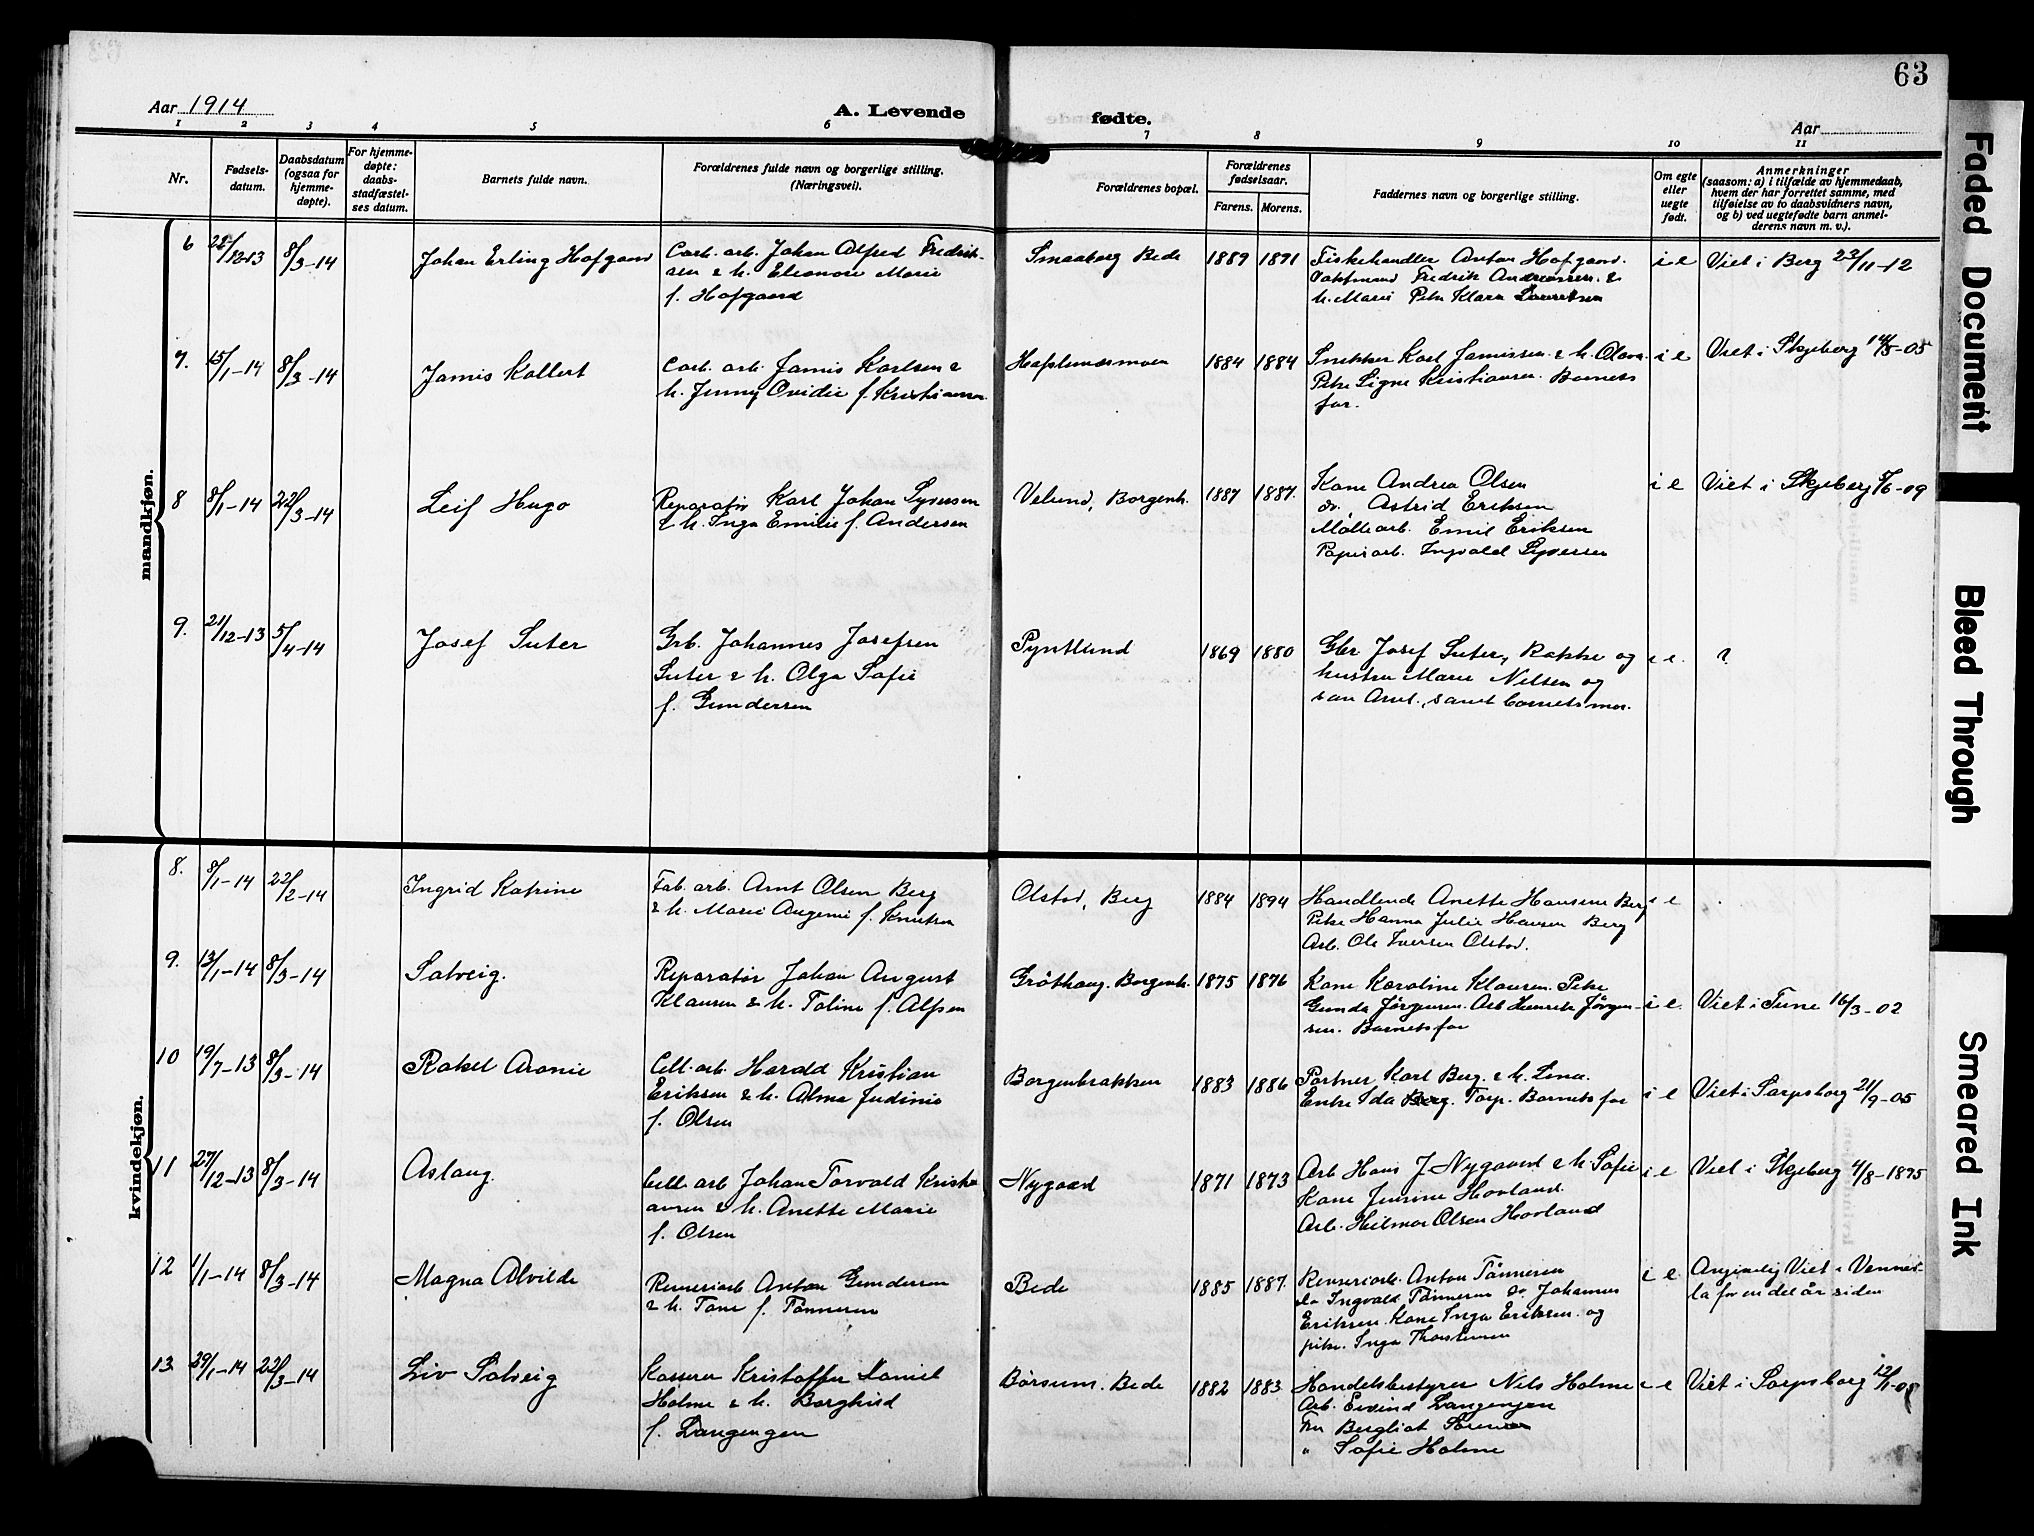 63
Aar 1914
A. Levende fødte.
Aar
1 2 3 4 5 6 7 8 9 10 11
Nr.
Fødsels-
datum.
Daabsdatum
(ogsaa for
hjemme-
døpte).
For hjemme-
døpte:
daabs-
stadfæstel-
ses datum.
Barnets fulde navn.
Forældrenes fulde navn og borgerlige stilling.
(Næringsvei).
Forældrenes bopæl.
Forældrenes
fødselsaar.
Farens. Morens.
Faddernes navn og borgerlige stilling.
Om egte
eller
uegte
født.
Anmerkninger
(saasom: a) i tilfælde av hjemmedaab,
hvem der har forrettet samme, med
tilføielse av to daabsvidners navn,
og b) ved uegtefødte barn anmel-
derens navn m. v.).
mandkjøn.
6 28/12-13 8/3-14 Johan Erling Hofgaard
Carb. arb. Johan Alfred Fredrik-
sen & h. Eleonore Marie
f. Hofgaard
Smaaborg Bede 1889 1891
Fiskehandler Anton Hofgaard.
Vaktmand Fredrik Andreassen &
h. Marie Pike Klara Lauritsen
i e Viet i Berg 23/11-12
7. 15/1-14 8/3-14 Jamis Kollert
Carb. arb. Jamis Karlsen &
h. Jenny Ovidie f. Kristiansen
Hafslundsmoen 1884 1884
Snekker Karl Jamissen & h. Olava
Pike Signe Kristiansen. Barnets
far.
i e Viet i Skjeberg 14/5-05
8 8/1-14 22/3-14 Leif Hugo
Reparatør Karl Johan Syversen
& h. Inga Emilie f. Andersen
Velund, Borgenh. 1887 1887.
Kone Andrea Olsen
do. Astrid Eriksen
Møllearb. Emil Eriksen
Papirarb. Ingvald Syversen
i e Viet i Skjeberg 5/6-09
9. 21/12-13 5/4-14 Josef Suter
Grb. Johannes Josefsen
Suter & h. Olga Sofie
f. Gundersen
Pyntlund 1869 1880
Gbr Josef Suter, Rokke og
hustru Marie Nilsen og
søn Arnt, samt barnets mor.
i e. ?
kvindekjøn.
8. 8/1-14 22/2-14 Ingrid Katrine
Fab. arb. Arnt Olsen Berg
& h. Marie Augenie f. Knutsen
Olstad, Berg 1884 1894
Handlende Anette Hansen Berg
Pike Hanna Julie Hansen Berg
Arb. Ole Iversen Olstad.
i e
9. 13/1-14 8/3-14 Solveig.
Reparatør Johan August
Klausen & h. Toline f. Alfsen
Grøthaug. Borgenh. 1875 1876
Kone Karoline Klausen. Pike
Gunda Jørgensen. Arb Henrik Jørgen-
sen. Barnets far
i e. Viet i Tune 16/3-02
10 19/7-13 8/3-14 Rakel Aronie
Cell. arb. Harald Kristian
Eriksen & h. Alma Judinie
f. Olsen
Borgenbrakken 1883 1886
Portner Karl Berg & h. Lina.
Enke Ida Berg. Torp. Barnets far
i e Viet i Sarpsborg 21/9-05
11 27/12-13 8/3-14 Aslaug.
Cell. arb Johan Torvald Kristi-
ansen & h. Anette Marie
f. Olsen
Nygaard 1871 1873
Arb Hans J Nygaard & h. Sofie
Kone Jensine Hovland.
Arb. Hilmar Olsen Hovland
i e Viet i Skjeberg 4/8-1895
12 1/1-14 8/3-14 Magna Alvilde
Renseriarb Anton Gundersen
& h. Tone f. Tønnesen
Bede 1885 1887.
Renseriarb. Anton Tønnesen
do Ingvald Tønnesen do. Johannes
Eriksen. Kone Inga Eriksen og
pike. Inga Thorstensen
i e Angivelig Viet i Vennes-
la for en del år siden
13 29/1-14 22/3-14 Liv Solveig
Kasserer Kristoffer Daniel
Holme & h. Borghild
f. Langengen
Børsum. Bede 1882 1883
Handelsbestyrer Nils Holme
Arb. Eivind Langengen
Fru Bergliot
" Sofie Holme
i e Viet i Sarpsborg
Faded Document
Bleed Through
Smeared Ink